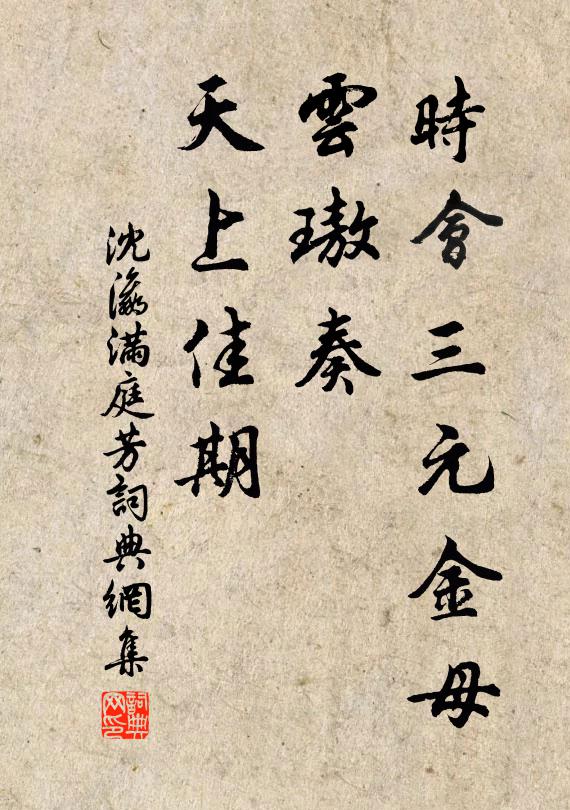 時會三元金母
雲璈奏
天上佳期
沈瀛滿庭芳詞典網集
詞典網印